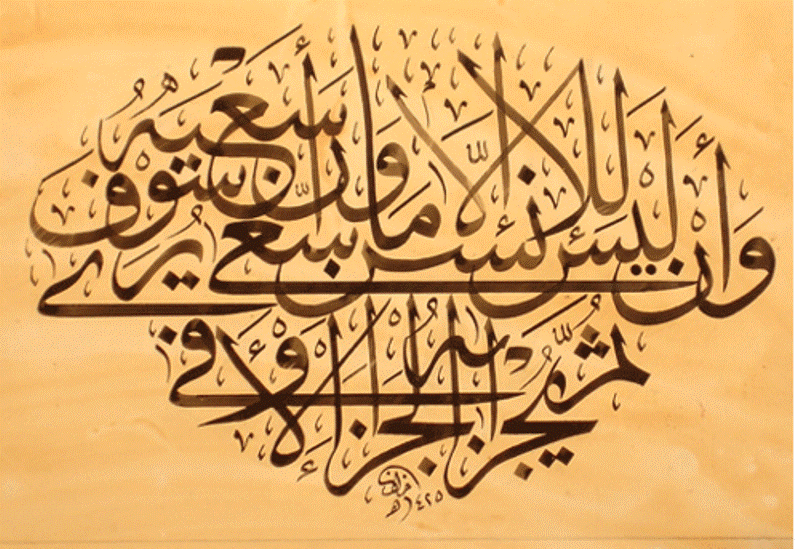 وَأَن لَّيْسَ لِلْإِنسَانِ إِلَّا مَا سَعَىٰ وَأَنَّ سَعْيَهُ سَوْفَ يُرَىٰ
ثُمَّ يُجْزَاهُ الْجَزَاءَ الْأَوْفَىٰ
١٤٢٥ هـ